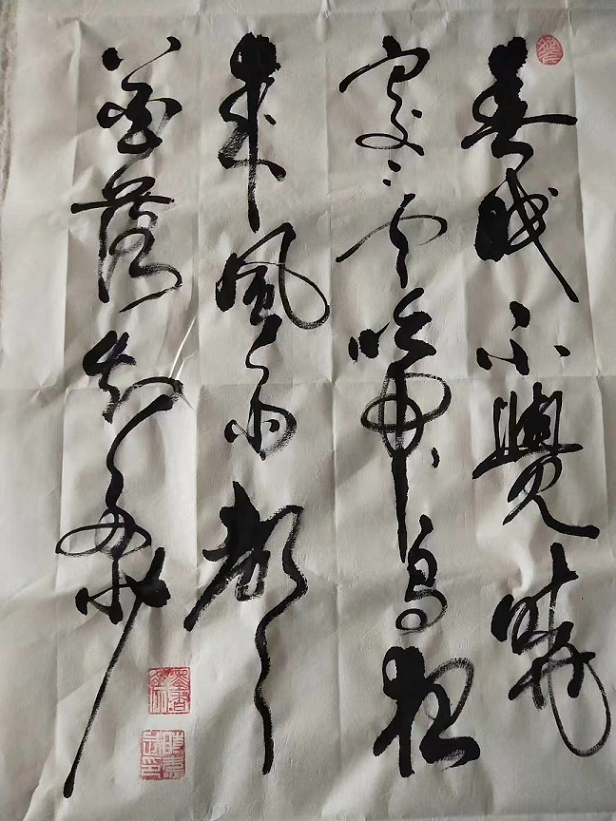 春眠不覺曉
處々聞啼鳥夜
來風雨聲
花落知多少